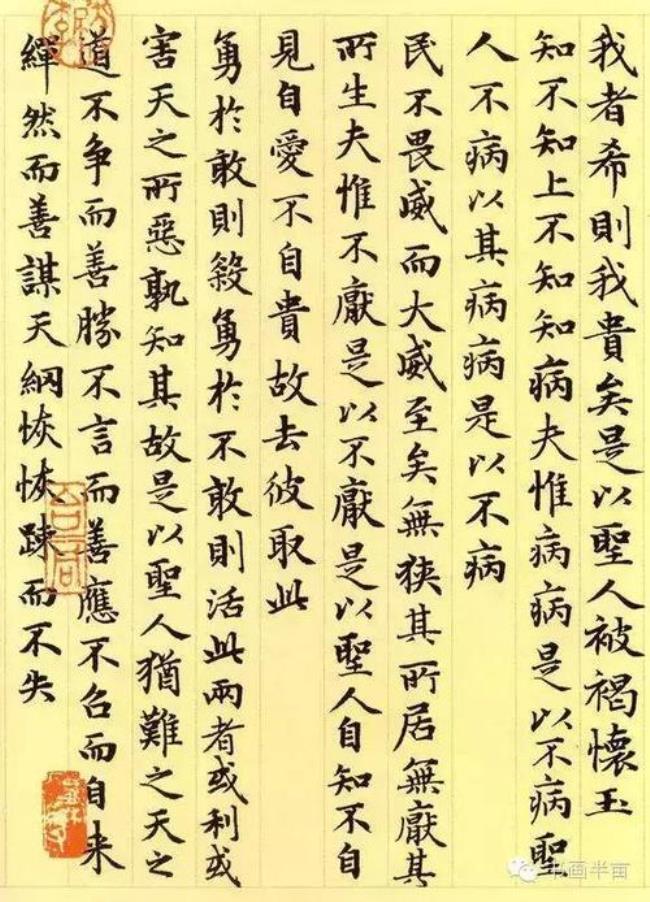 我者希則我貴矣是以聖人被褐懷玉
知不知上不知知病夫惟病病是以不病聖
人不病以其病病是以不病
民不畏威而大威至矣無狹其所居無厭其
所生夫惟不厭是以不厭是以聖人自知不自
見自愛不自貴故去彼取此
勇於敢則殺勇於不敢則活此兩者或利或
害天之所惡孰知其故是以聖人猶難之天之
道不爭而善勝不言而善應不召而自来
繟然而善謀天網恢恢踈而不失
书画半亩